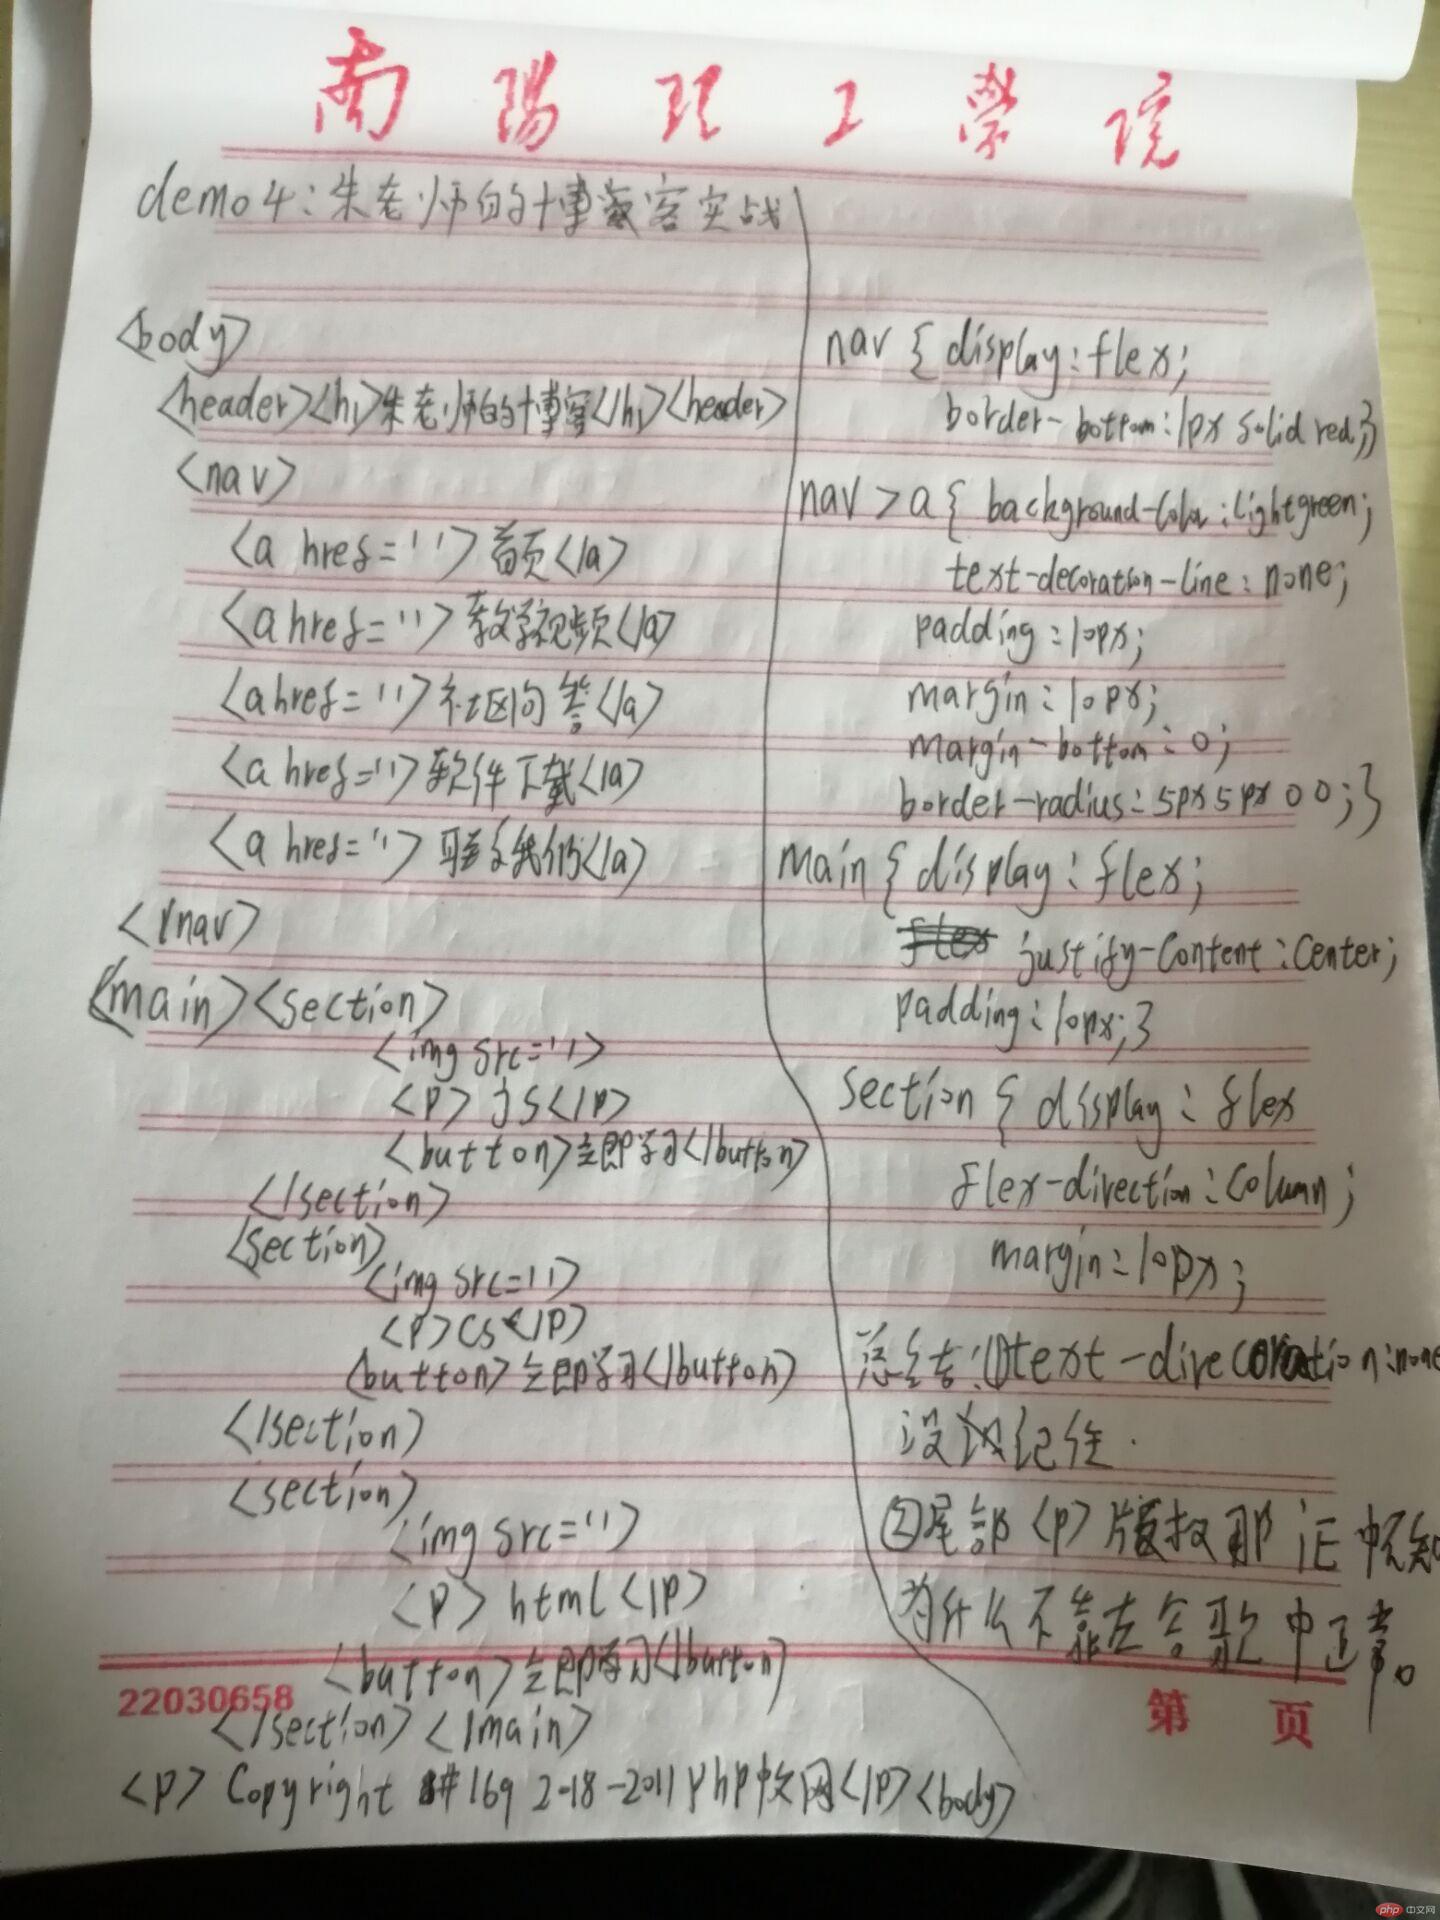 南阳理工学院
demo4:朱老师的博客实战
<body>
<header><h1>朱老师的博客</h1><header>
<nav>
<a href=''>首页</a>
<a href=''>教学视频</a>
<a href=''>社区问答</a>
<a href=''>软件下载</a>
<a href=''>联系我们</a>
</nav>
<main><section>
<img src=''>
<p>js</p>
<button>立即学习</button>
</section>
<section>
<img src=''>
<p>cs</p>
<button>立即学习</button>
</section>
<section>
<img src=''>
<p>html</p>
<button>立即学习</button>
</section></main>
<p>Copyright #169 2-18-2011 php中文网</p><body>
nav{display:flex;
border-bottom:1px solid red;}
nav>a{background-color:lightgreen;
text-decoration-line:none;
padding:10px;
margin:10px;
margin-bottom:0;
border-radius:5px 5px 00;}
main{display:flex;
justify-content:center;
padding:10px;}
section{display:flex
flex-direction:column;
margin:10px;
总结:①text-direcoration:none
没记住.
②尾部<p>版权那
为什么不靠左
22030658
第 页
php 中文网